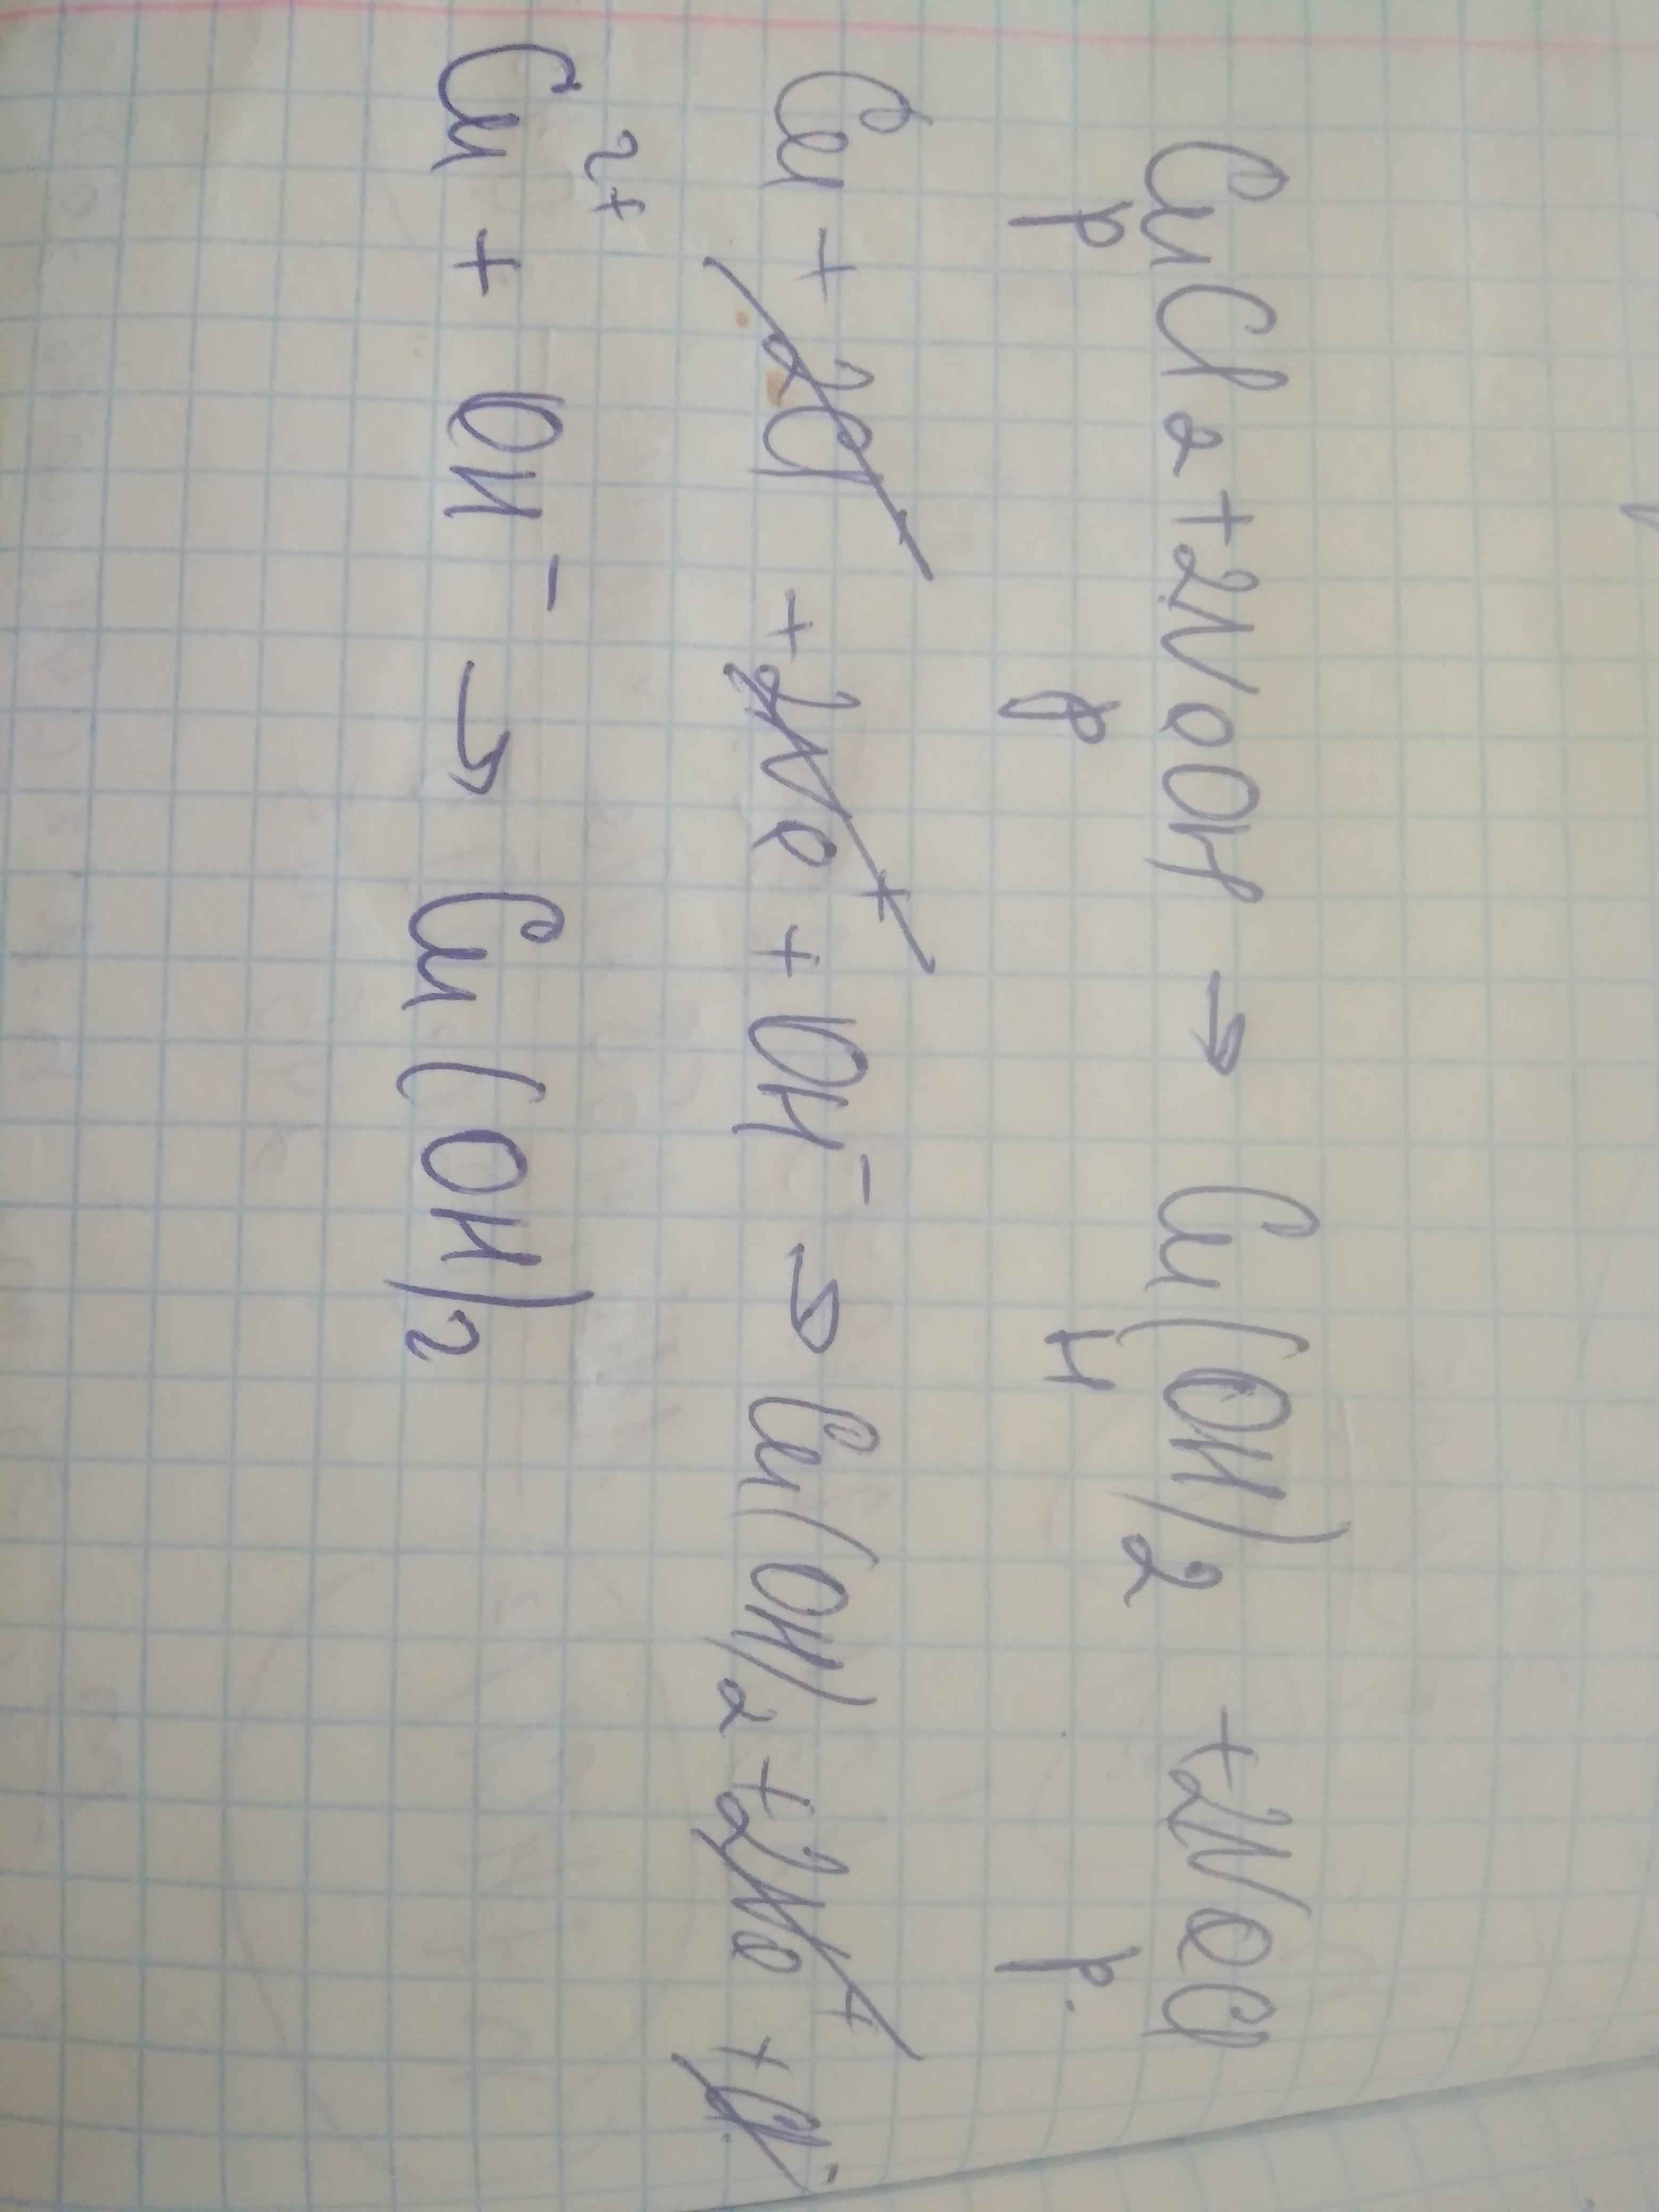 CuCl₂ + 2NaOH → Cu(OH)₂ + 2NaCl
р р н р.
Cu + 2Cl⁻ + 2Na⁺ + OH⁻ → Cu(OH)₂ + 2Na⁺ + Cl⁻
Cu²⁺ + OH⁻ → Cu(OH)₂